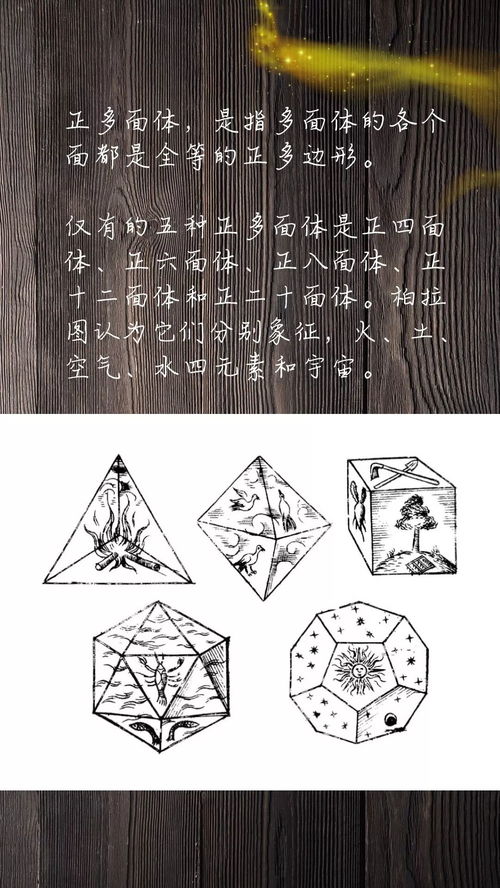 正多面体，是指多面体的各个
面都是全等的正多边形。
仅有的五种正多面体是正四面
体、正六面体、正八面体、正
十二面体和正二十面体。柏拉
图认为它们分别象征，火、土、
空气、水四元素和宇宙。